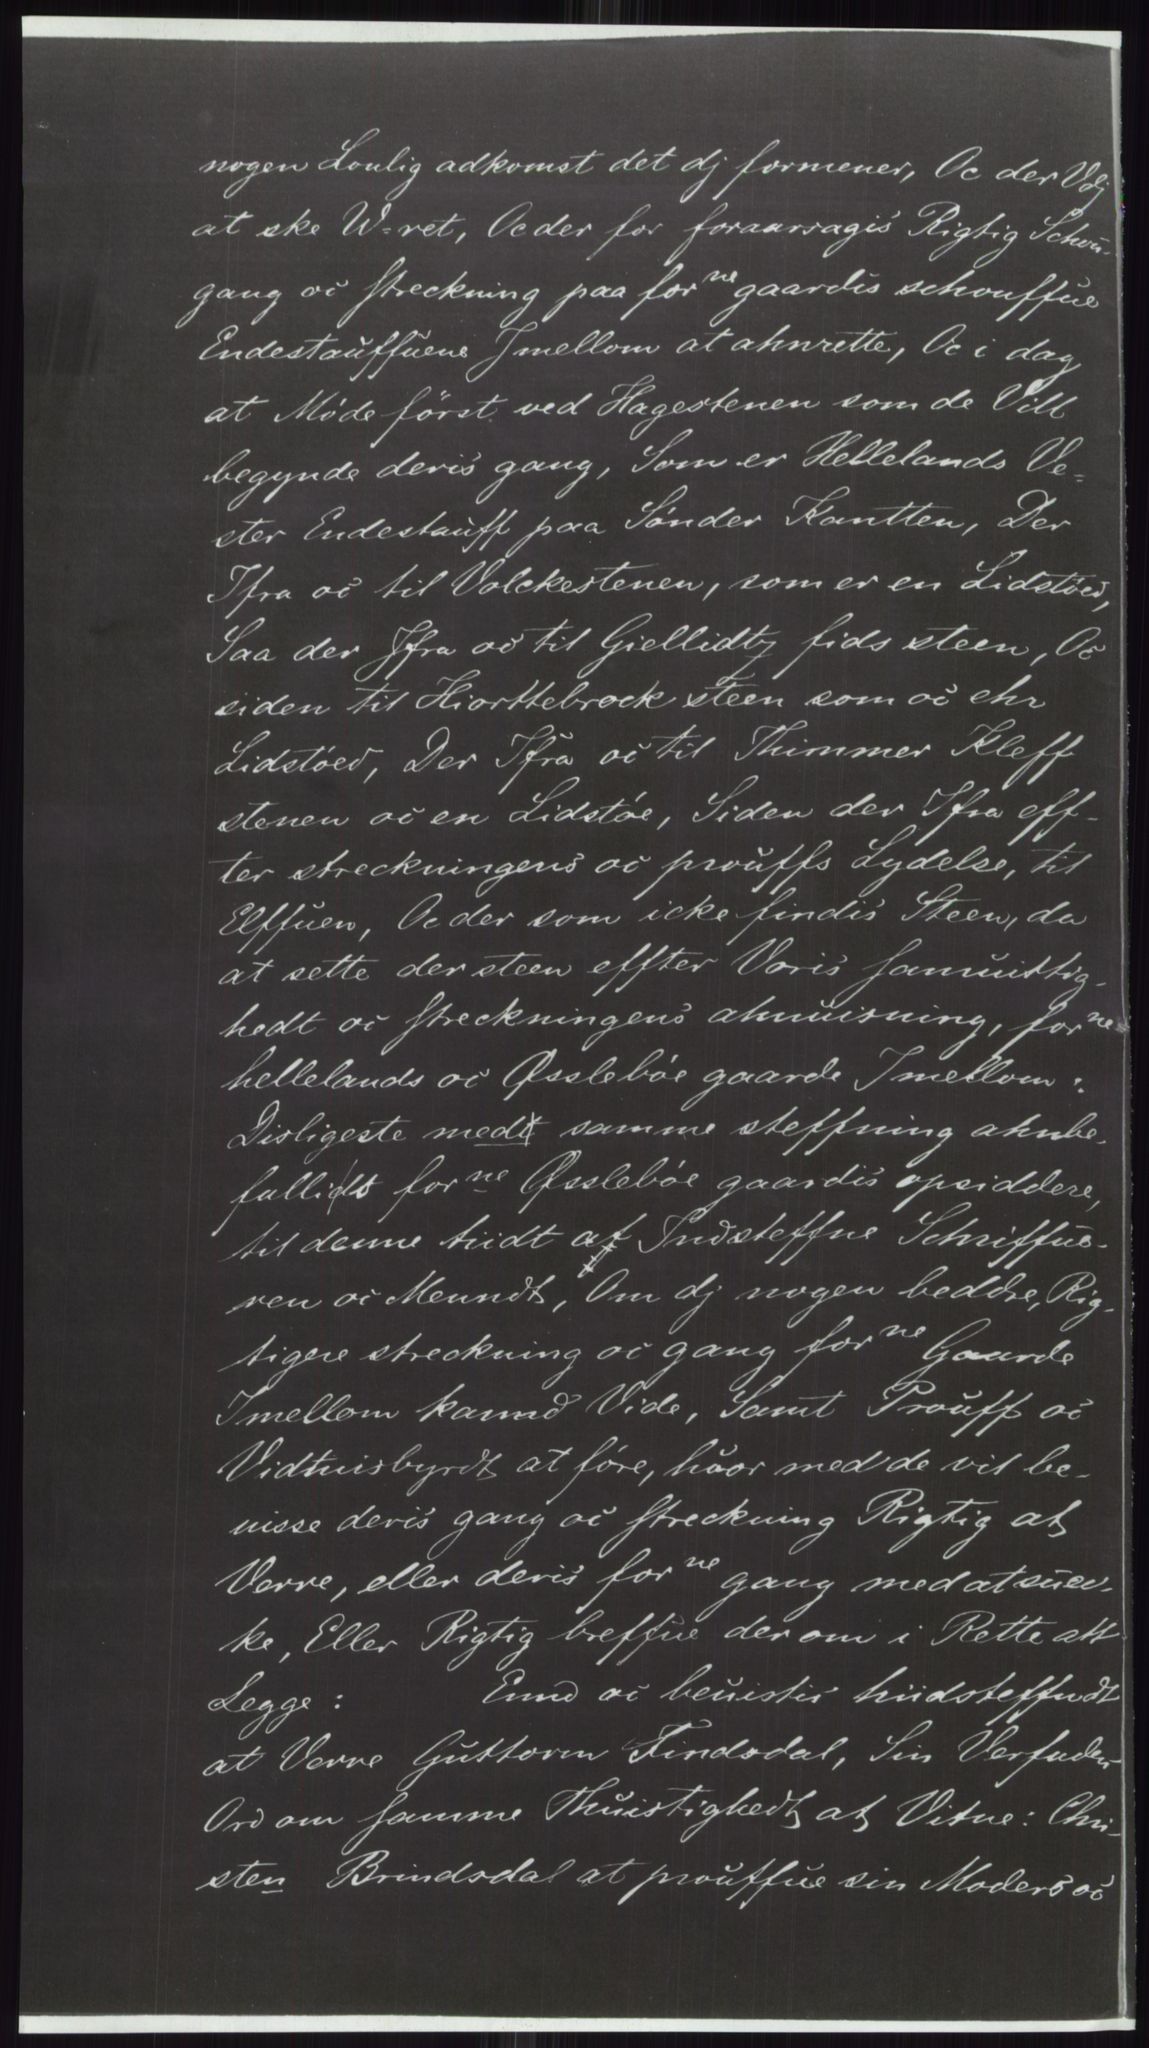 nogen Loulig adkomst det dj formener, Oc der Vdj
at ske W=ret, Oc der for foraarsagis Rigtig Schou-
gang oc streckning paa for<sup>ne</sup> gaardis schouffue
Endestauffuene Jmellom at ahnrette, Oc i dag
at Møde först ved Hagestenen som de Vill
begynde deris gang, Som er Hellelands Ve=
ster Endestauff paa Sønder Kantten, Der
Ifra oc til Volckestenen, som er en Lidstöed,
Saa der Jfra oc til Giellidtz fids steen, Oc
siden til Hiorttebrock steen som oc ehr
Lidstöed, Der Ifra oc til Thimmer Kleff
stenen oc en Lidstöe, Siden der Ifra eff-
ter streckningens oc prouffs Lydelse, til
Elffuen, Oc der som icke findis Steen, da
at sette der steen effter Voris samuittig-
hedt oc streckningens ahnuisning, for<sup>ne</sup>
hellelands oc Øsslebøe gaarde Imellom:
Disligeste medt samme steffning ahnbe-
fallidt for<sup>ne</sup> Øsslebøe gaardis opsiddere,
til denne tiidt at Indsteffne Schriffue-
ren oc Menndt, Om dj nogen beddre, Rig-
tigere streckning oc gang for<sup>ne</sup> Gaarde
Imellom kannd Vide, Samt Prouff oc
Vidtnisbyrdt at føre, huor med de vil be-
uisse deris gang oc streckning Rigtig at
Verre, eller deris for<sup>ne</sup> gang med at suec-
ke, Eller Rigtig breffue der om i Rette att
Legge: Ennd oc beuistis hiidsteffndt
at Verre Guttorm Findsdal, Sin Verfaders
Ord om samme Thuistighedt at Vitne: Chri-
sten Brindsdal at prouffue sin Moders oc